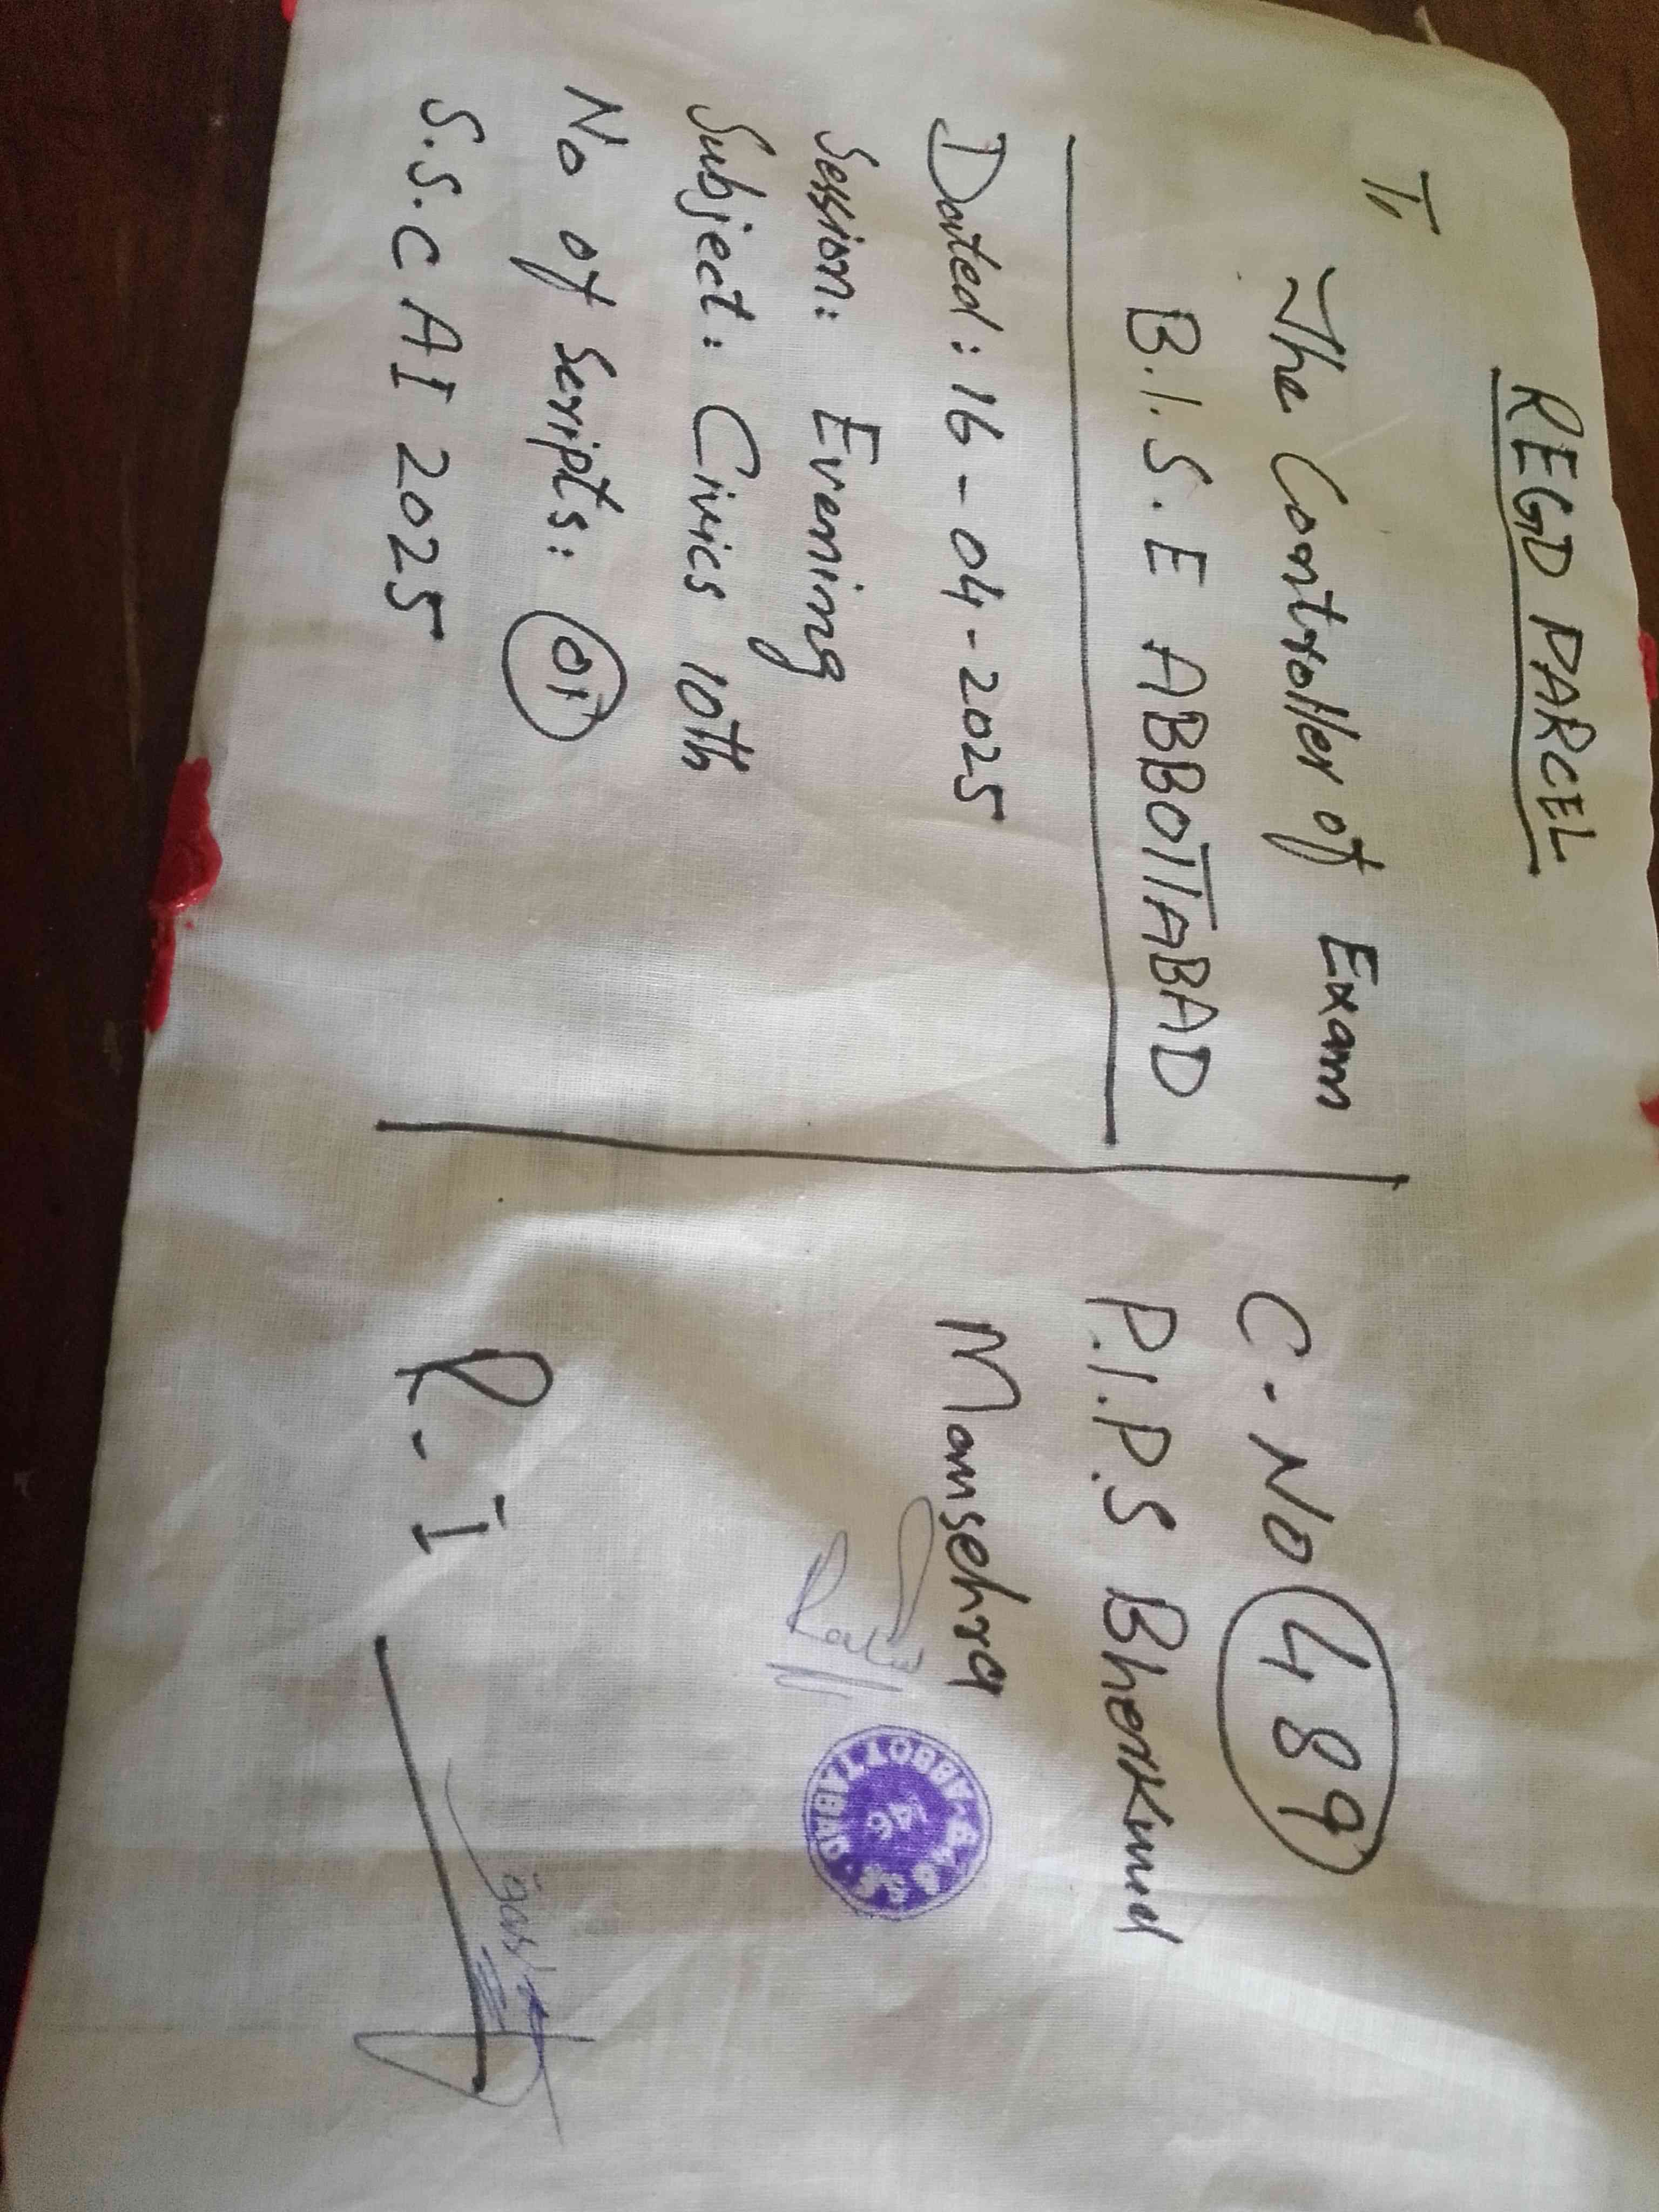 REGD PARCEL
To
The Controller of Exam
B.I.S.E ABBOTTABAD
Dated: 16-04-2025
Session: Evening
Subject: Civics 10th
No of Scripts: 01
S.S.C A I 2025
C-No 489
P.I.P.S Bherkund
Mansehra
146
ABBOTTABAD
R-I